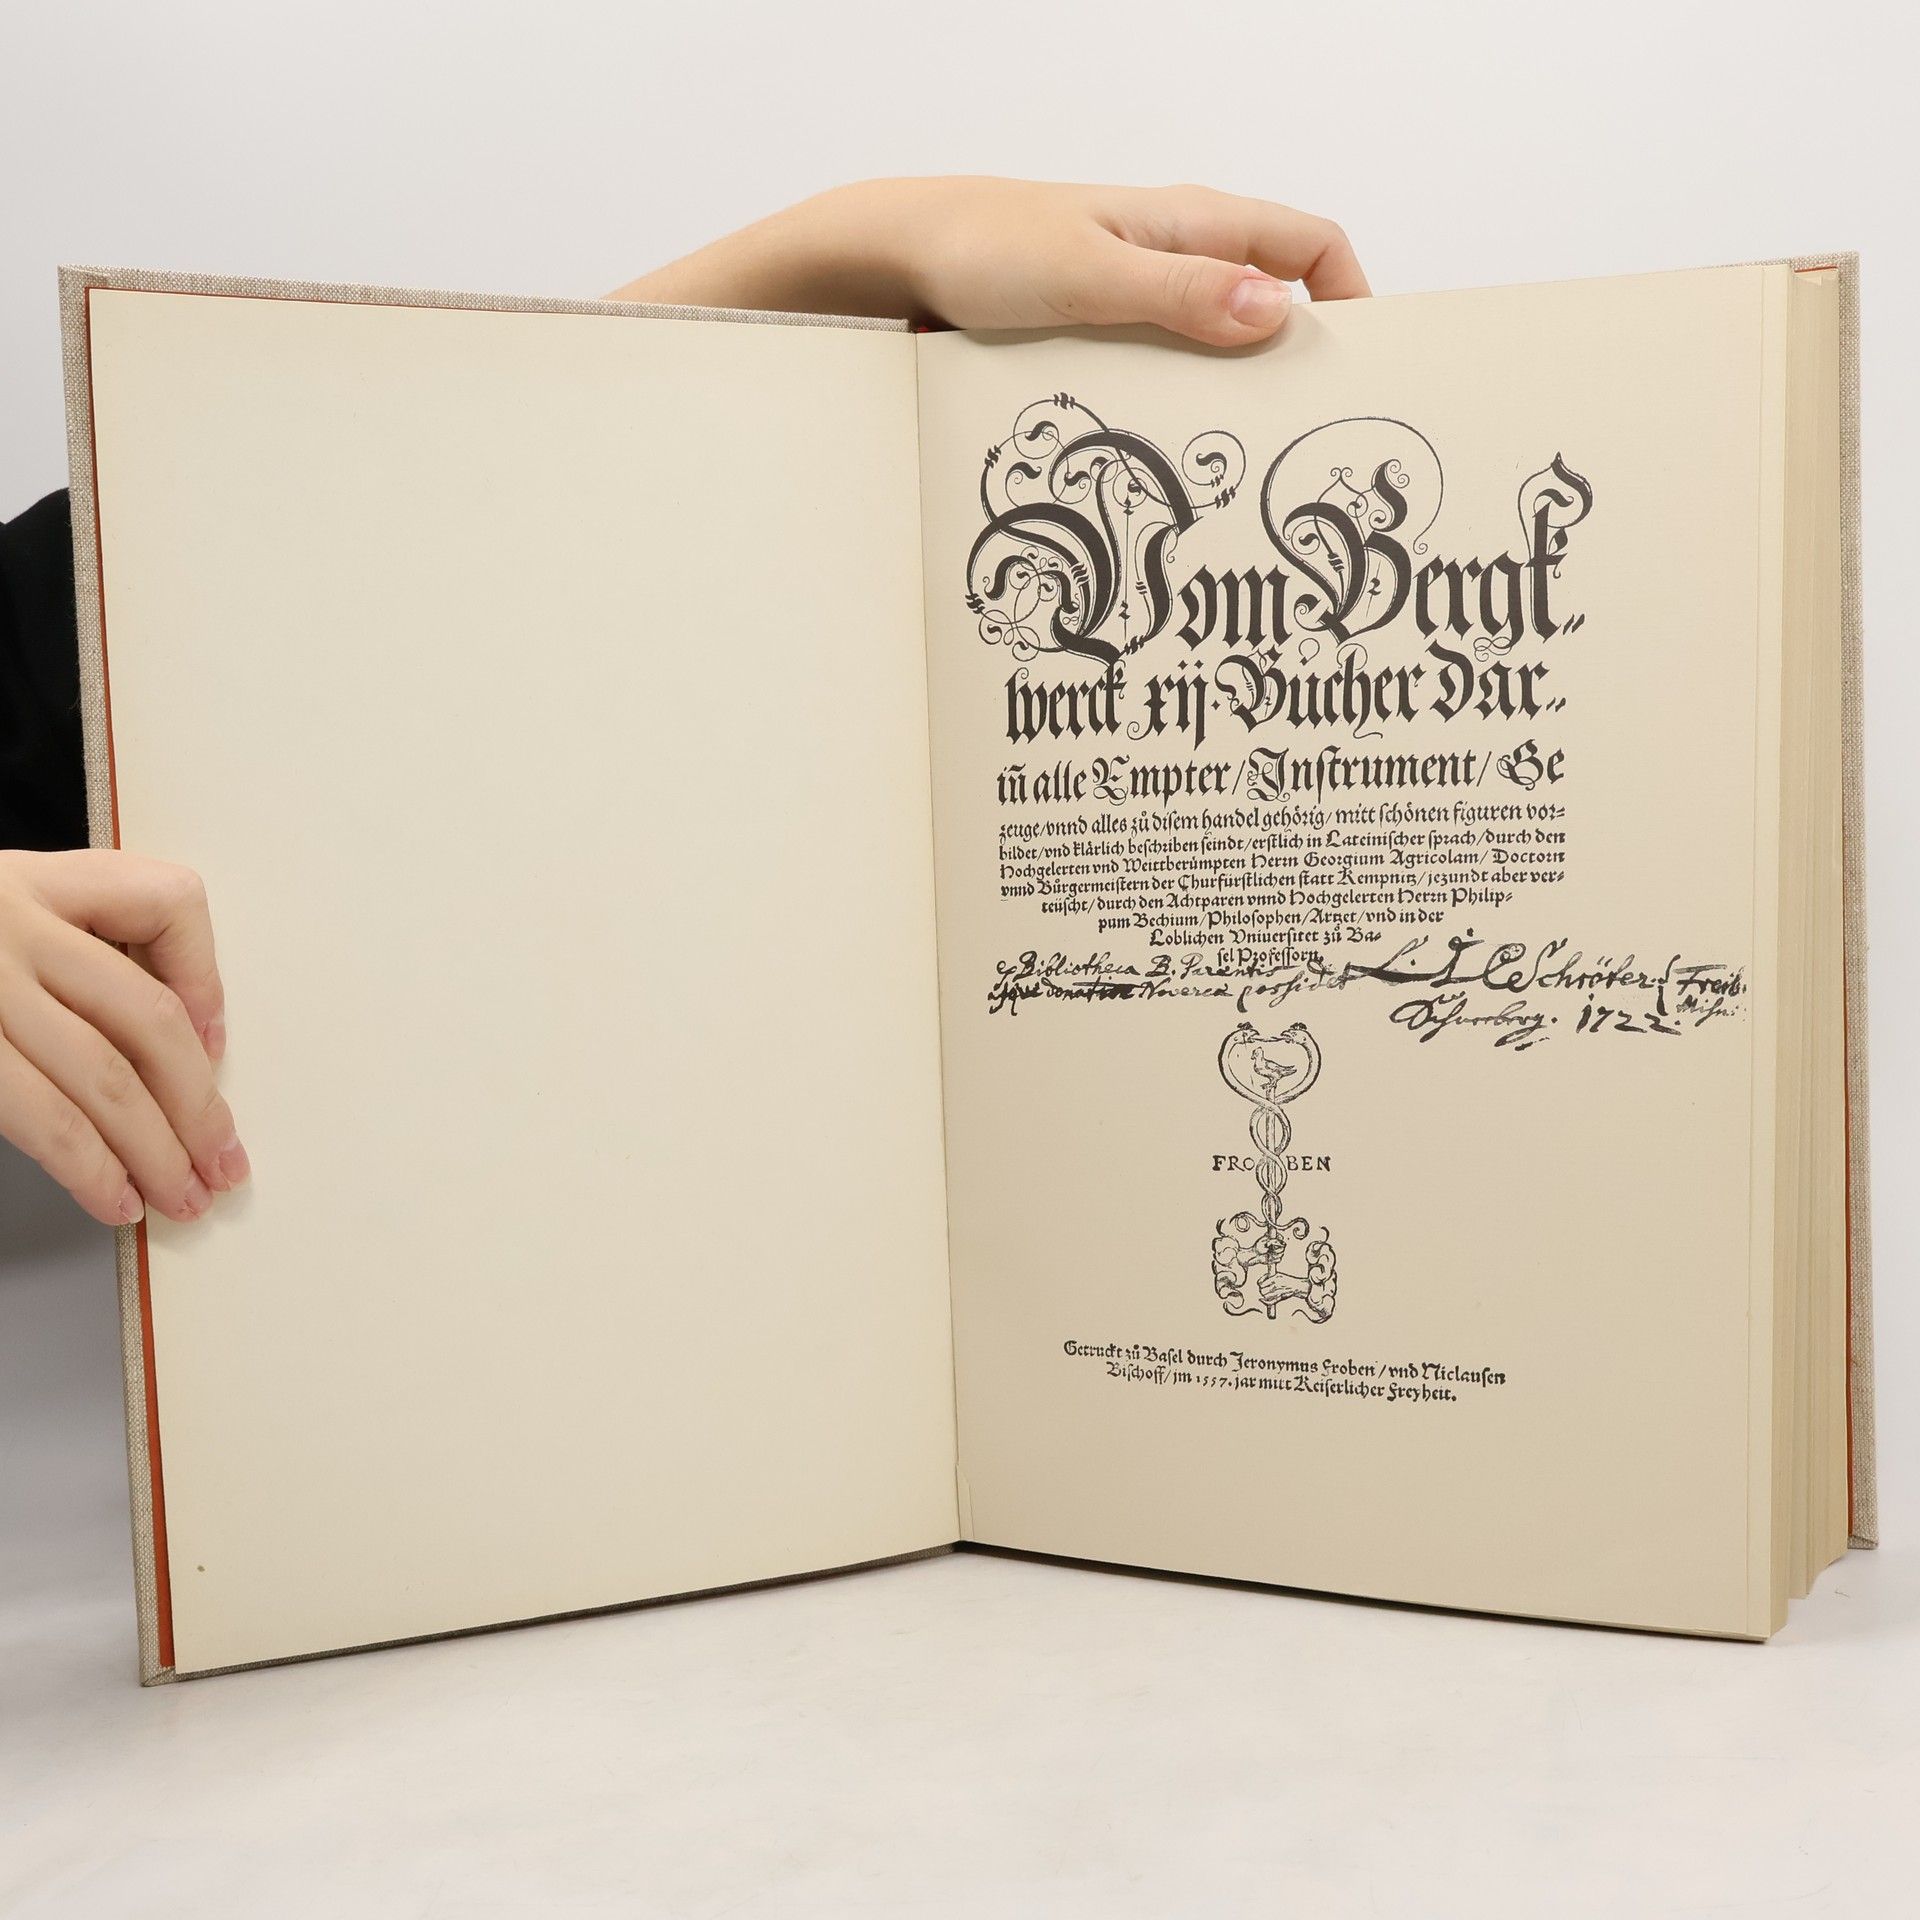 Vom Bergk⸗
werck xij. Bücher Dar⸗
iñ alle Empter/ Instrument/ Ge
zeuge/ vnnd alles zů disem handel gehörig/ mitt schönen figuren vor⸗
bildet/ vnd klärlich beschriben seindt/ erstlich in Lateinischer sprach/ durch den
Hochgelerten vnd Weittberümpten Herrn Georgium Agricolam/ Doctorn
vnnd Bürgermeistern der Churfürstlichen statt Kempnitz/ jezundt aber ver⸗
teüscht/ durch den Achtparen vnnd Hochgelerten Herrn Philip⸗
pum Bechium/ Philosophen/ Artzet/ vnd in der
Loblichen Vniuersitet zů Ba⸗
sel Professorn.
ex Bibliotheca B. Parentis
donation Noverca possidet Schröter Freib.
Schneeberg. 1722.
FRO BEN
Getruckt zů Basel durch Jeronymus Froben/ vnd Niclausen
Bischoff/ im 1557. jar mitt Keiserlicher Freyheit.